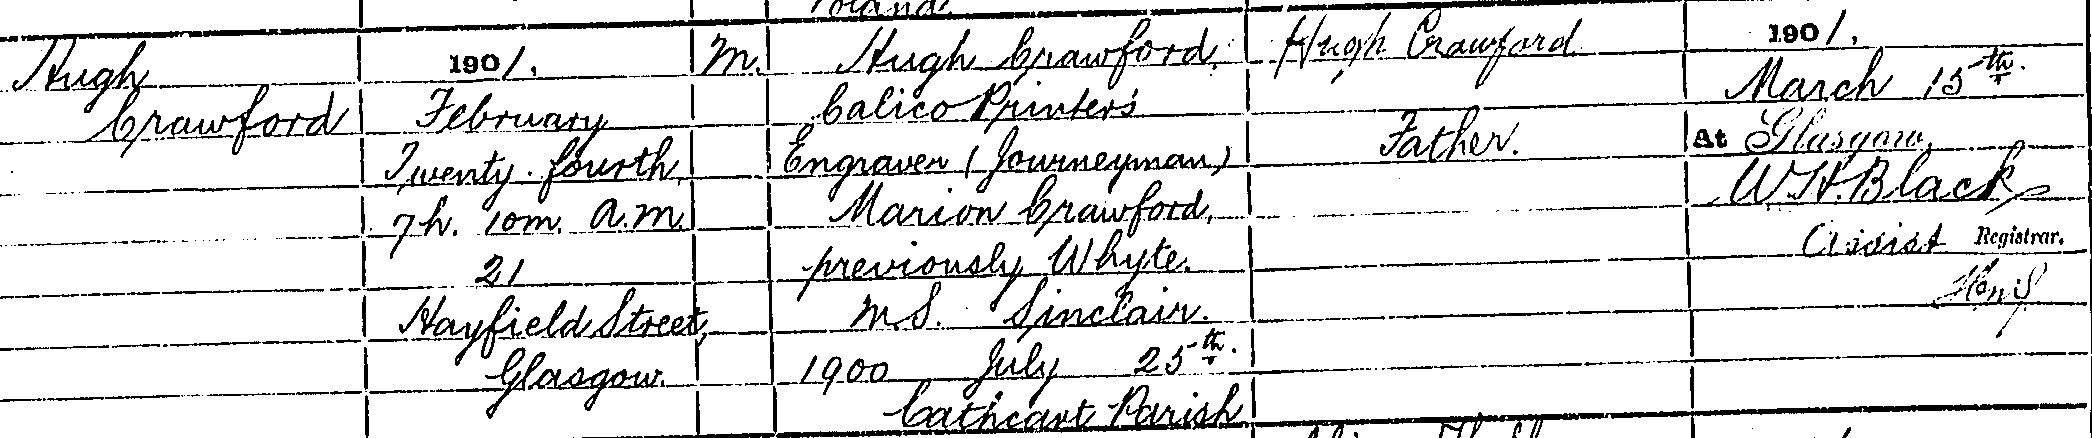 Poland
Hugh
Crawford
1901.
February
Twenty-fourth,
7h. 10m. A.M.
21
Hayfield Street,
Glasgow.
M.
Hugh Crawford,
Calico Printer's
Engraver (Journeyman)
Marion Crawford,
previously Whyte.
M.S. Sinclair.
1900 July 25th.
Cathcart Parish
Hugh Crawford
Father.
1901.
March 15th.
At Glasgow
W. H. Black
Assist Registrar.